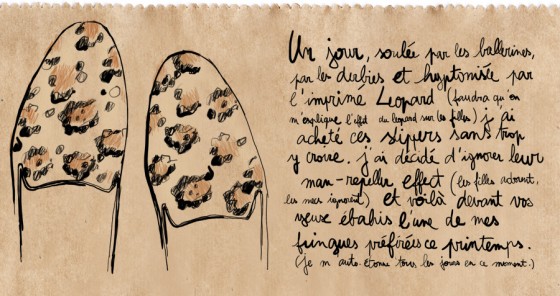 Un jour, soulée par les ballerines,
par les derbies et hyptomisée par
l'imprimé Léopard (faudra qu'on
m'explique l'effet du léopard sur les filles) j'ai
acheté ces slippers sans trop
y croire. j'ai décidé d'ignorer leur
man-repeller effect (les filles adorent,
les mecs ignorent) et voilà devant vos
yeux ébahis l'une de mes
fringues préférées ce printemps.
(je m'auto-étonne tous les jours en ce moment.)